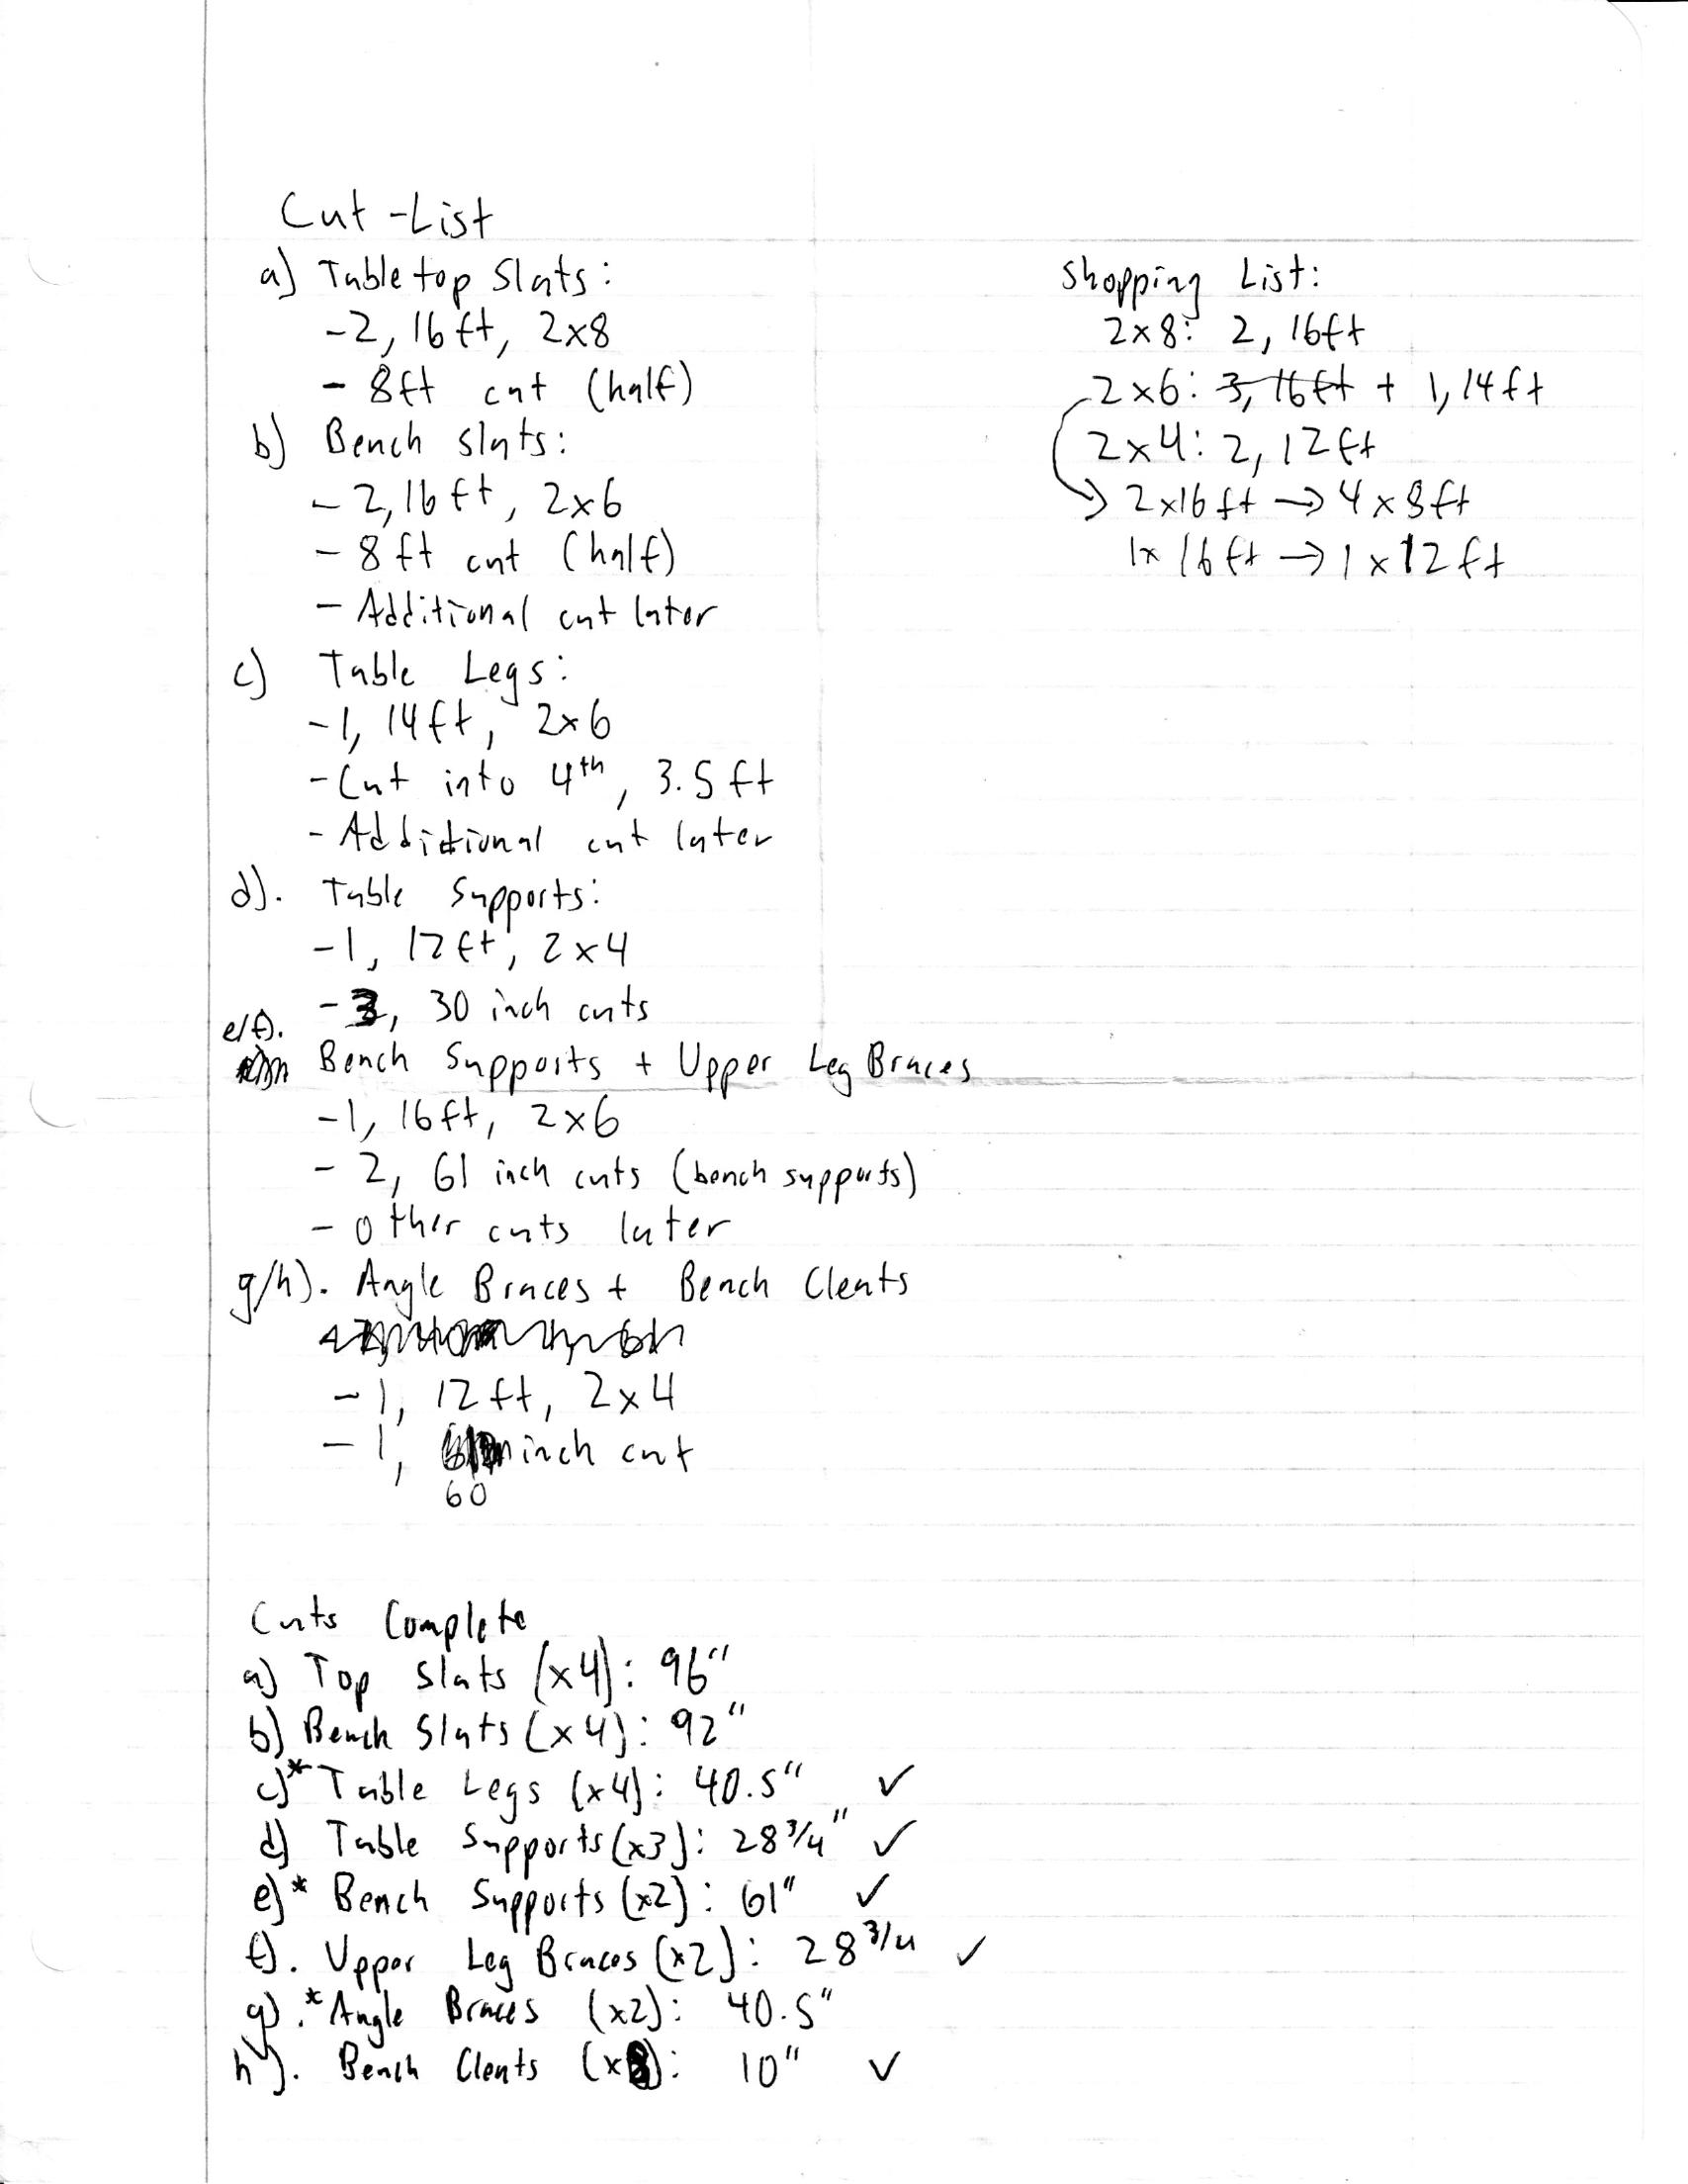 Cut-List
a) Table top Slats:
-2, 16ft, 2x8
- 8ft cut (half)
b) Bench slats:
- 2, 16ft, 2x6
- 8ft cut (half)
- Additional cut later
c) Table Legs:
-1, 14ft, 2x6
-Cut into 4th, 3.5ft
- Additional cut later
d). Table Supports:
-1, 12ft, 2x4
-3, 30 inch cuts
e/f).
Bench Supports + Upper Leg Braces
-1, 16ft, 2x6
- 2, 61 inch cuts (bench supports)
- other cuts later
g/h). Angle Braces + Bench Cleats
- 1, 12ft, 2x4
- 1, inch cut
60
Shopping List:
2x8: 2, 16ft
2x6: 3, 16ft + 1, 14ft
2x4: 2, 12ft
→ 2x16ft → 4x8ft
1x 16ft → 1x12ft
Cuts Complete
a) Top Slats (x4): 96"
b) Bench Slats (x4): 92"
c)* Table Legs (x4): 40.5" ✓
d) Table Supports (x3): 28 3/4" ✓
e)* Bench Supports (x2): 61" ✓
f). Upper Leg Braces (x2): 28 3/4 ✓
g).* Angle Braces (x2): 40.5"
h). Bench Cleats (x8): 10" ✓